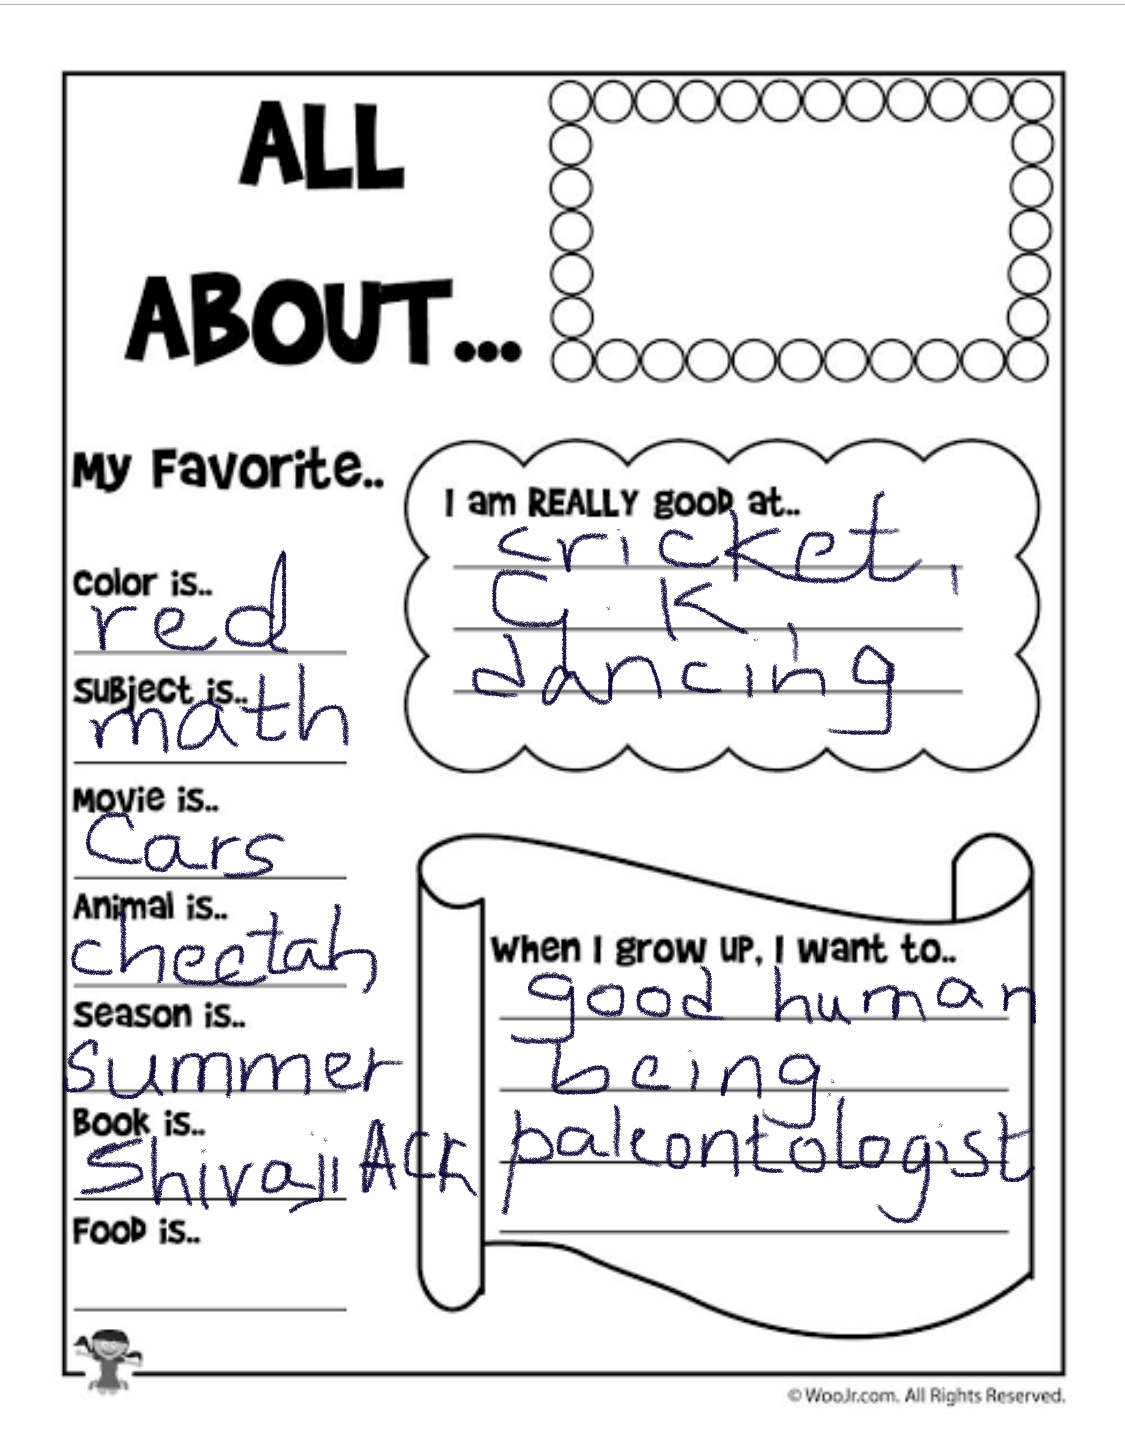 ALL
ABOUT...
My Favorite..
Color is..
red
Subject is..
math
Movie is..
Cars
Animal is..
cheetah
Season is..
Summer
Book is..
Shivaji ACK
Food is..
I am REALLY good at..
cricket,
G. K,
dancing
When I grow up, I want to..
good human
being
paleontologist
© WooJr.com. All Rights Reserved.